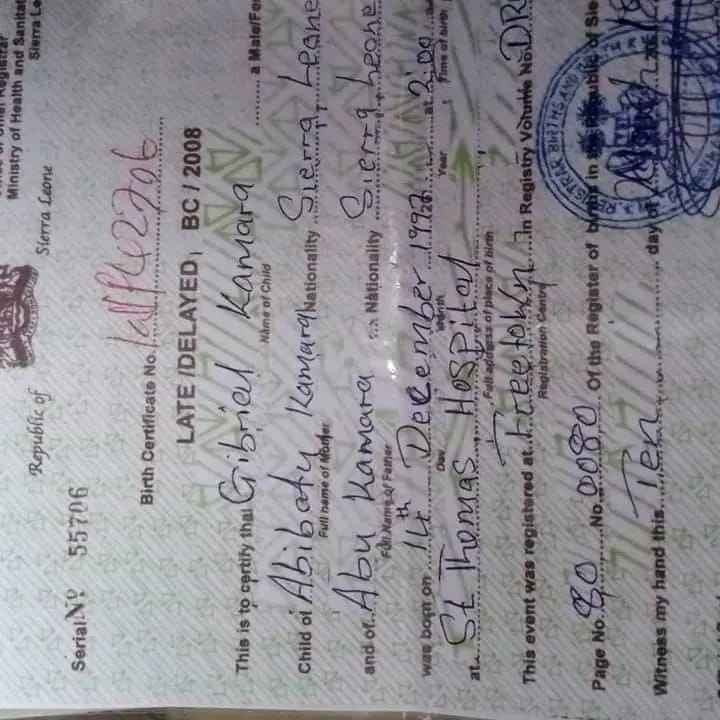 Ministry of Health and Sanitat
Sierra Le
Republic of Sierra Leone
Serial Nº 55706
Birth Certificate No.
LATE /DELAYED BC / 2008
This is to certify that Gibriel Kamara a Male/Fem
Name of Child
Child of Abibatu Kamara Nationality Sierra Leone
Full name of Mother
and of Abu Kamara Nationality Sierra Leone
Full Name of Father
was born on 14th December 1992 at 2:00
Day Month Year Time of birth
at St Thomas Hospital
Full address of place of birth
This event was registered at Freetown in Registry Volume No. DR
Registration Centre
Page No. 80 No. 0080 Of the Register of births in the Republic of Sie
Witness my hand this Ten day of
REGISTRAR BIRTHS AND